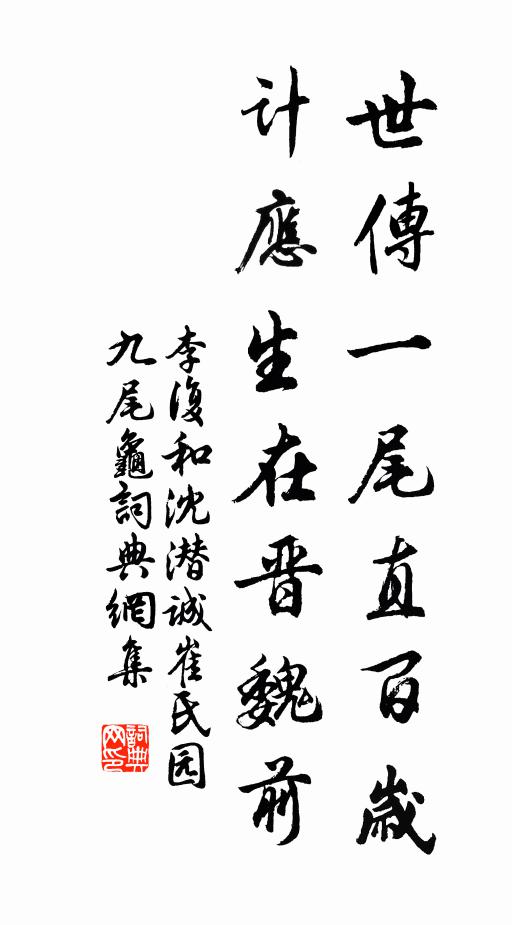 世傳一尾直百歲
計應生在晋魏前
李復和沈潛誠崔氏园
九尾龜詞典網集
詞典
网印